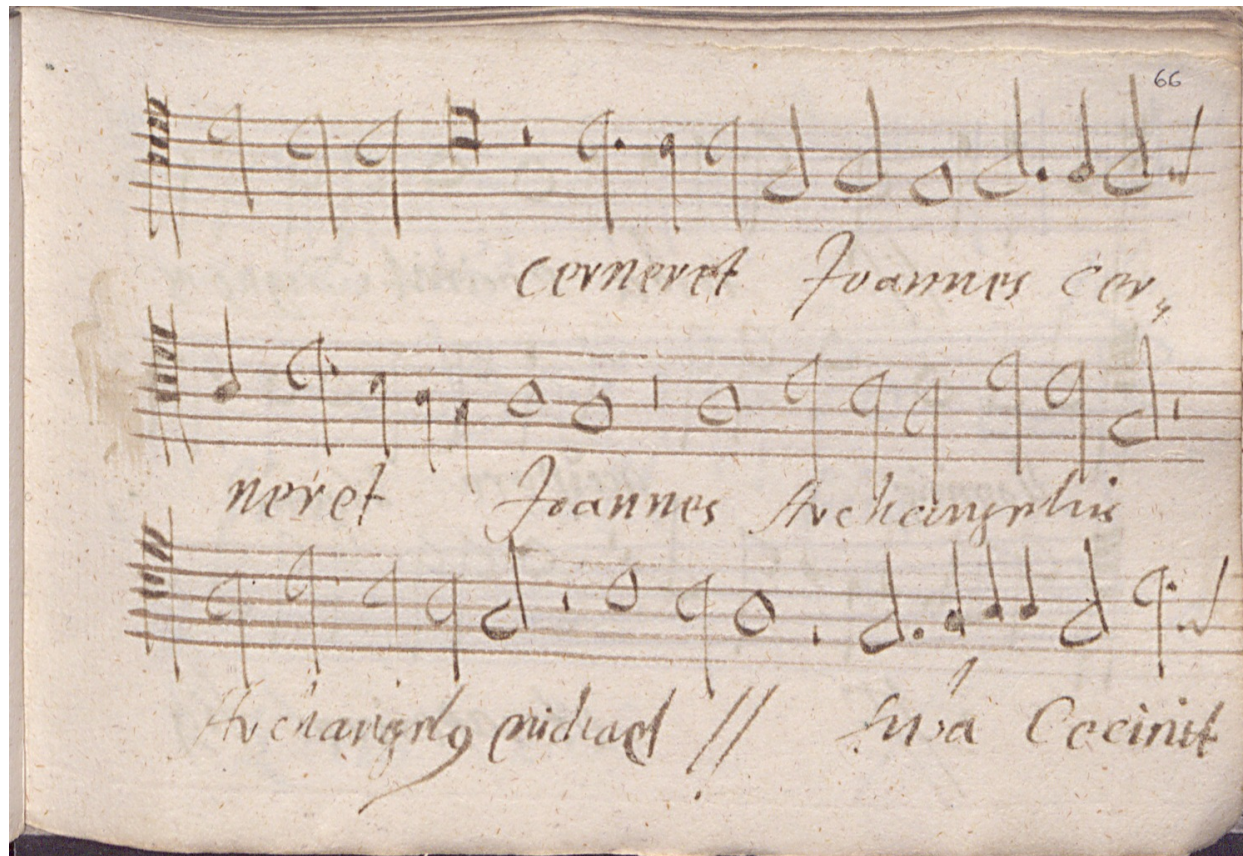 66
cerneret Joannes cer„
neret Joannes Archangelus
Archangelus michael // Cecinit